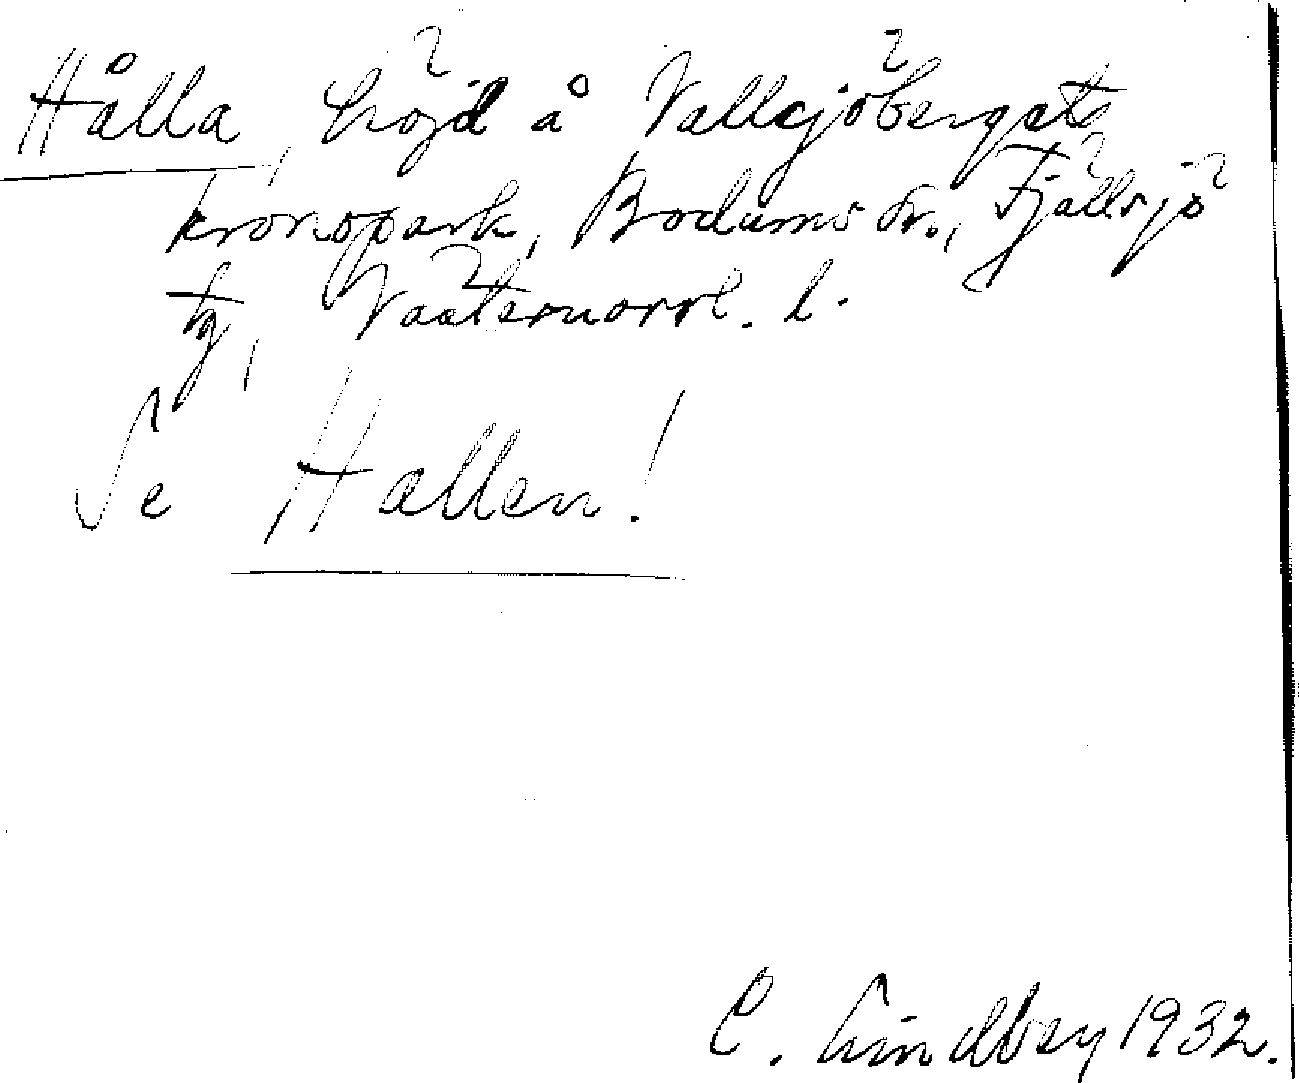 Hålla, höjd å Vallsjöbergets
kronopark, Bodums sn., Fjällsjö
tg, Västernorrl. l.
Se Hallen!
C. Lindberg 1932.